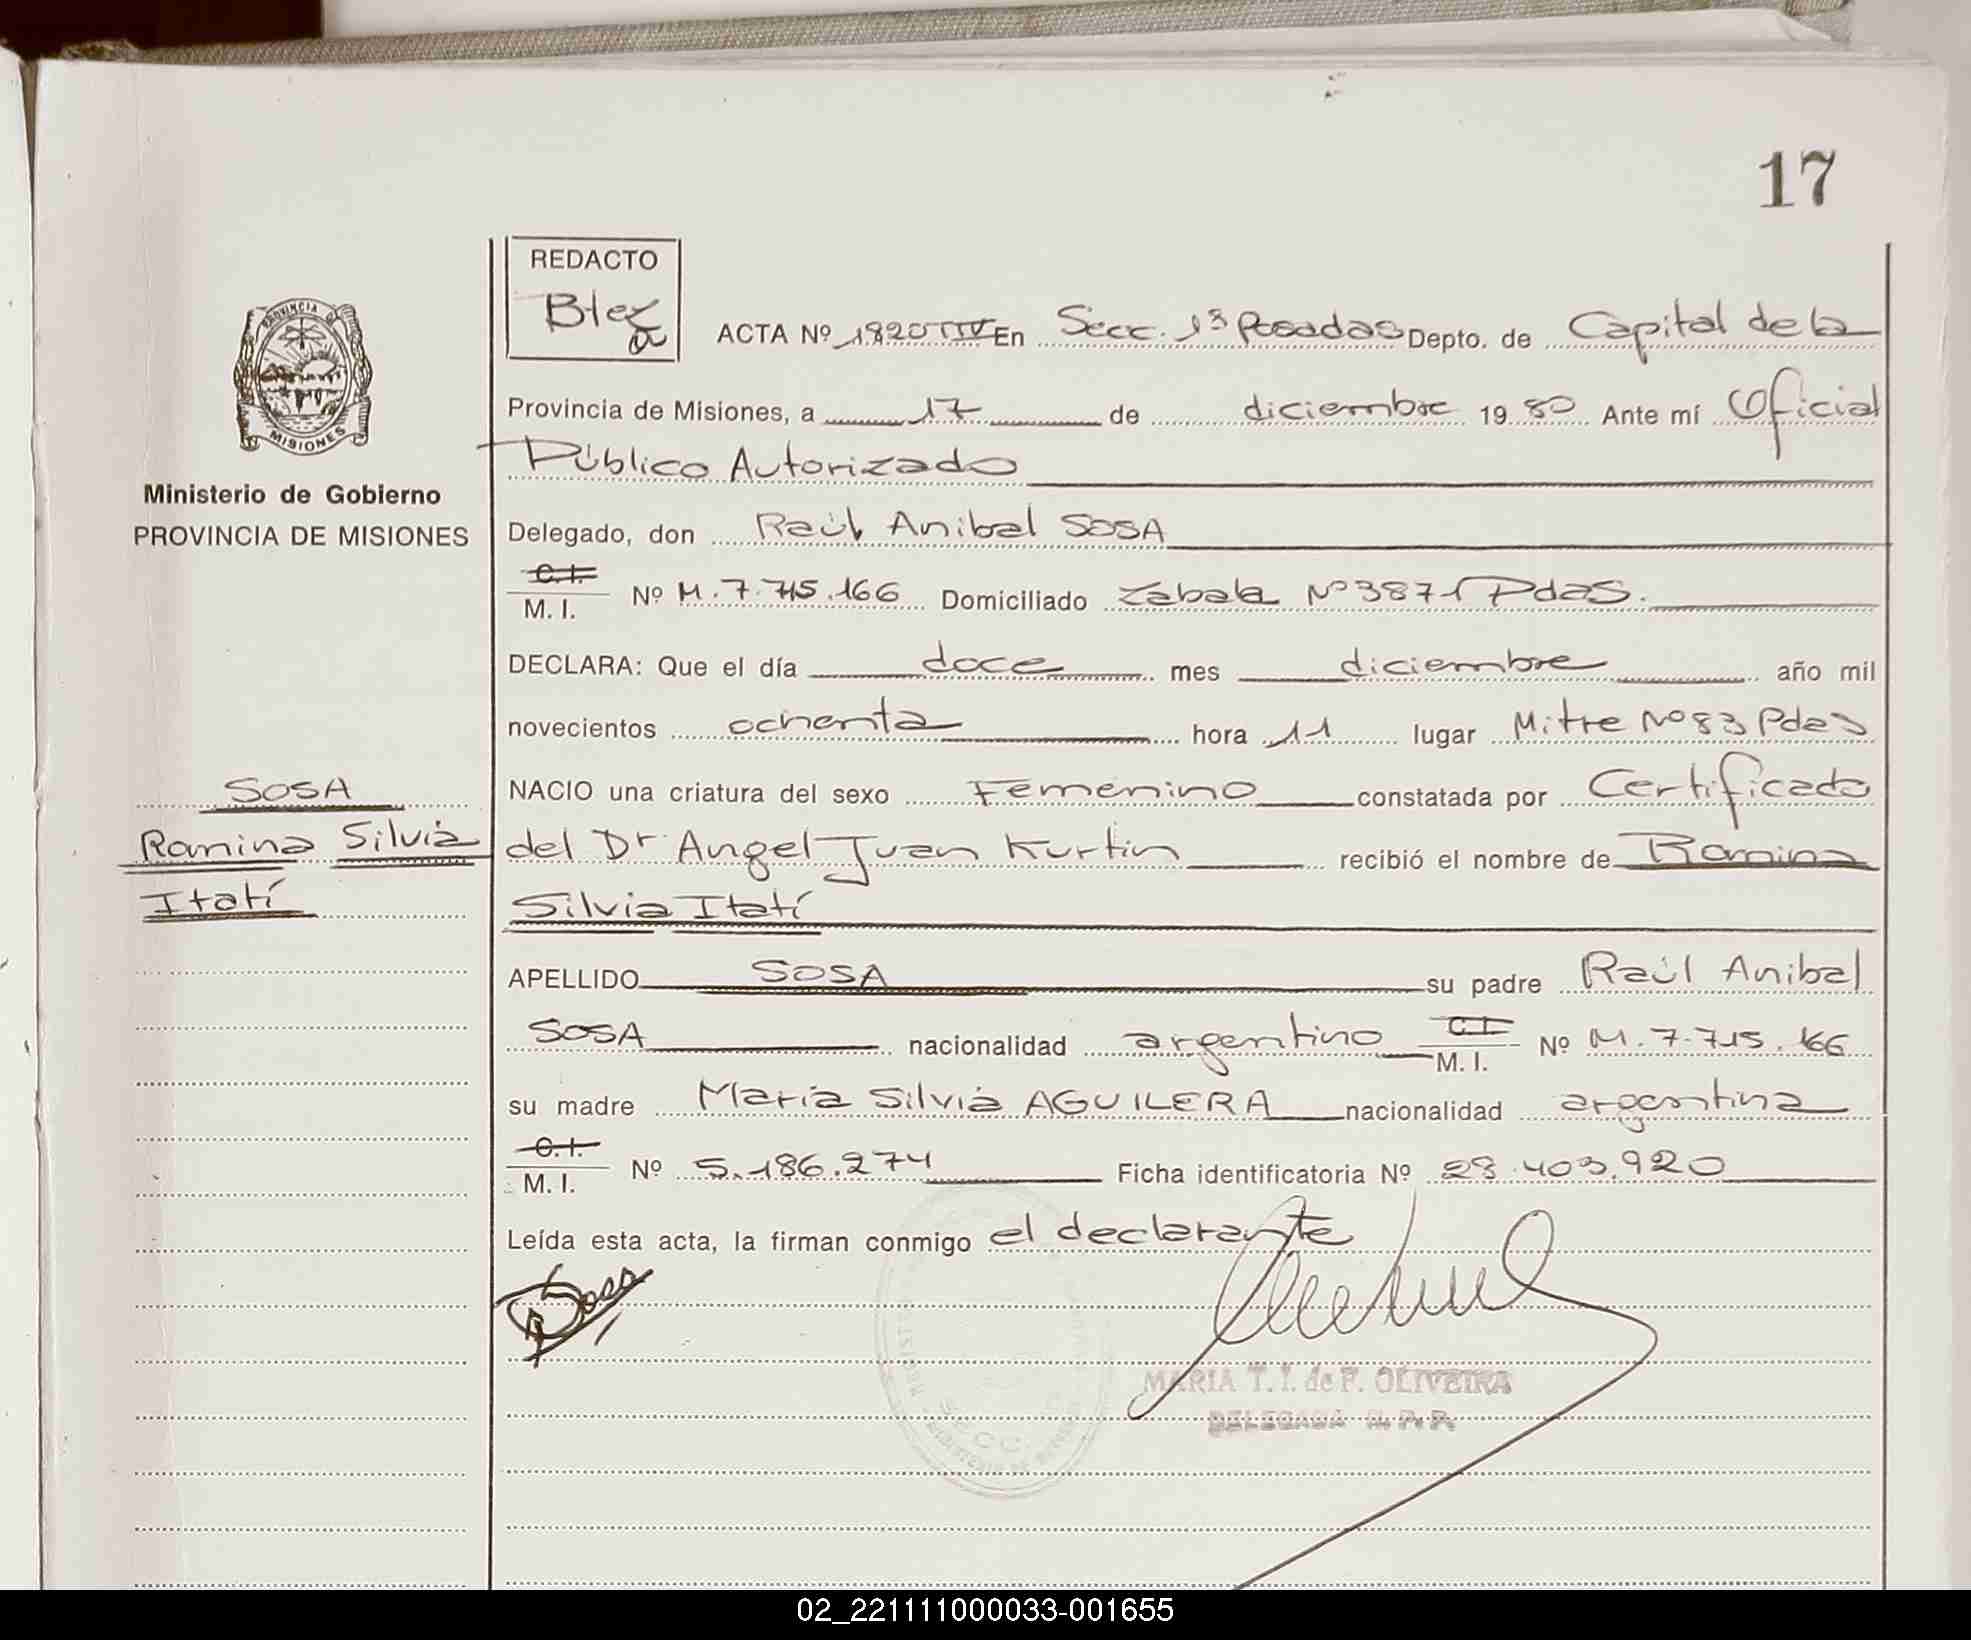 17
REDACTO
Blez
PROVINCIA DE
MISIONES
ACTA Nº 1820 TIV En Secc. 1ª Posadas Depto. de Capital de la
Provincia de Misiones, a 17 de diciembre 1980 Ante mí Oficial
Público Autorizado
Ministerio de Gobierno
PROVINCIA DE MISIONES
Delegado, don Raúl Anibal SOSA
C.I.
M. I. Nº M. 7.715.166 Domiciliado Zabala Nº 3871 Pdas.
DECLARA: Que el día doce mes diciembre año mil
novecientos ochenta hora 11 lugar Mitre Nº 83 Pdas
SOSA
Romina Silvia
Itatí
NACIO una criatura del sexo Femenino constatada por Certificado
del Dr Angel Juan Kurtin recibió el nombre de Romina
Silvia Itatí
APELLIDO SOSA su padre Raúl Anibal
SOSA nacionalidad argentino C.I. M. I. Nº M. 7.715.166
su madre María Silvia AGUILERA nacionalidad argentina
C.I.
M. I. Nº 5.186.274 Ficha identificatoria Nº 28.403.920
Leída esta acta, la firman conmigo el declarante
Sosa
MARIA T. I. de F. OLIVEIRA
DELEGADA R. P. P.
02_221111000033-001655